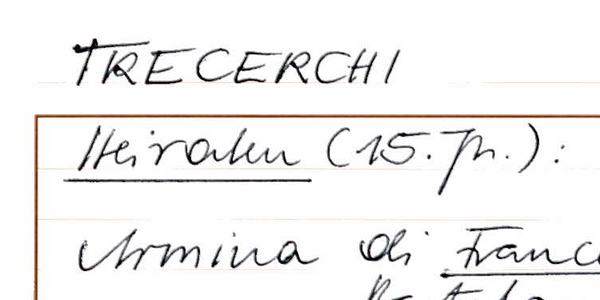 TRECERCHI
Heiraten (15. Jh.):
Armina di Franc